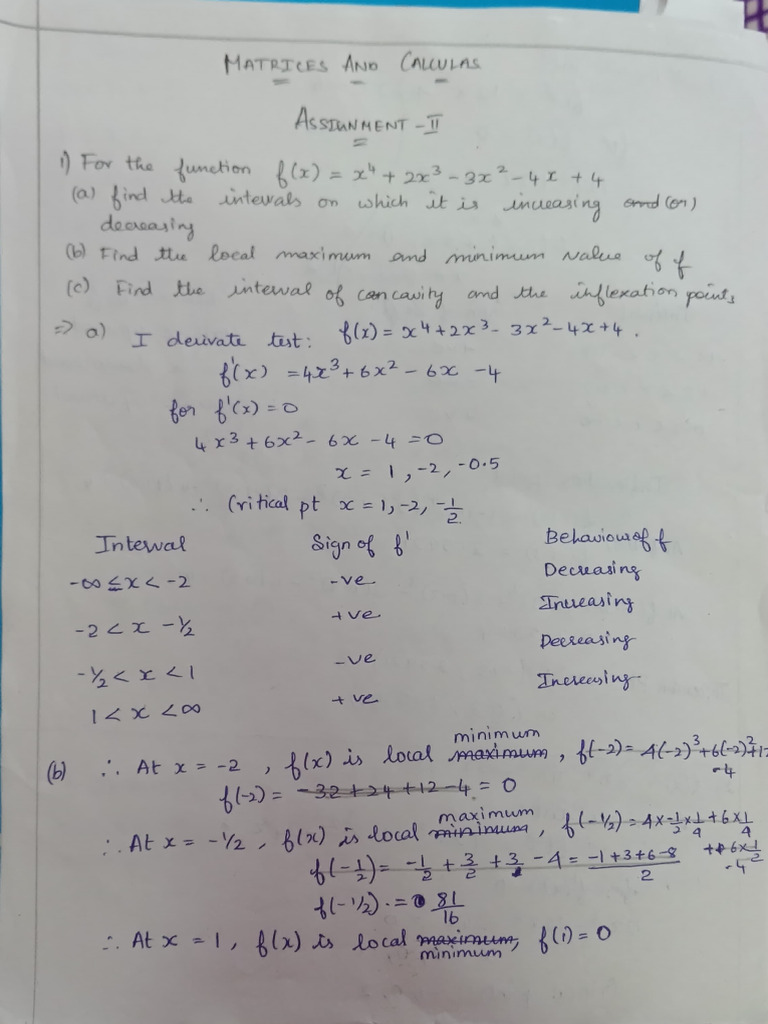 MATRICES AND CALCULAS
ASSIGNMENT - II
1) For the function f(x) = x⁴ + 2x³ - 3x² - 4x + 4
(a) find the intervals on which it is increasing and (or)
decreasing
(b) Find the local maximum and minimum value of f
(c) Find the interval of concavity and the inflexation points
=> a) I derivate test: f(x) = x⁴ + 2x³ - 3x² - 4x + 4.
f'(x) = 4x³ + 6x² - 6x - 4
for f'(x) = 0
4x³ + 6x² - 6x - 4 = 0
x = 1, -2, -0.5
∴ Critical pt x = 1, -2, -1/2
Interval Sign of f' Behaviour of f
-∞ ≤ x < -2 -ve Decreasing
-2 < x -1/2 +ve Increasing
-1/2 < x < 1 -ve Decreasing
1 < x < ∞ +ve Increasing
(b) ∴ At x = -2, f(x) is local maximum minimum, f(-2) = 4(-2)³ + 6(-2)² + 12
-4
f(-2) = -32 + 24 + 12 - 4 = 0
∴ At x = -1/2, f(x) is local minimum maximum, f(-1/2) = 4 × -1/2 × 1/4 + 6 × 1/4
+ 6 × 1/2
-4
f(-1/2) = -1/2 + 3/2 + 3 - 4 = -1+3+6-8/2
f(-1/2) = 81/16
∴ At x = 1, f(x) is local maximum, minimum f(1) = 0